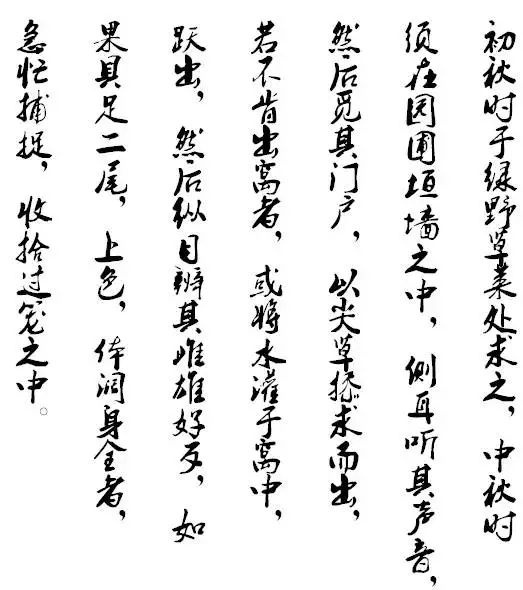 初秋时于绿野草莱处求之，中秋时
须在园圃垣墙之中，侧耳听其声音，
然后觅其门户，以尖草掭求而出，
若不肯出窝者，或将水灌于窝中，
跃出，然后纵目辨其雌雄好歹，如
果具足二尾，上色，体润身全者，
急忙捕捉，收拾过笼之中。